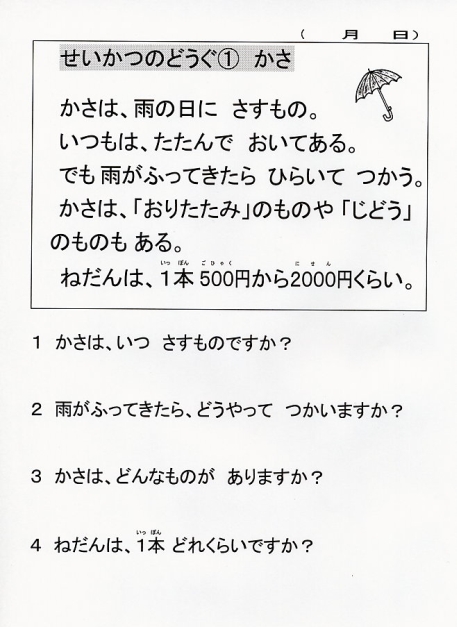 （　月　日）
せいかつのどうぐ①　かさ
かさは、雨の日に　さすもの。
いつもは、たたんで　おいてある。
でも 雨がふってきたら　ひらいて　つかう。
かさは、「おりたたみ」のものや 「じどう」
のものも ある。
いっ ぽん ごひゃく にせん
ねだんは、1本 500円から2000円くらい。
1　かさは、いつ　さすものですか？
2　雨がふってきたら、どうやって　つかいますか？
3　かさは、どんなものが　ありますか？
いっ ぽん
4　ねだんは、1本 どれくらいですか？